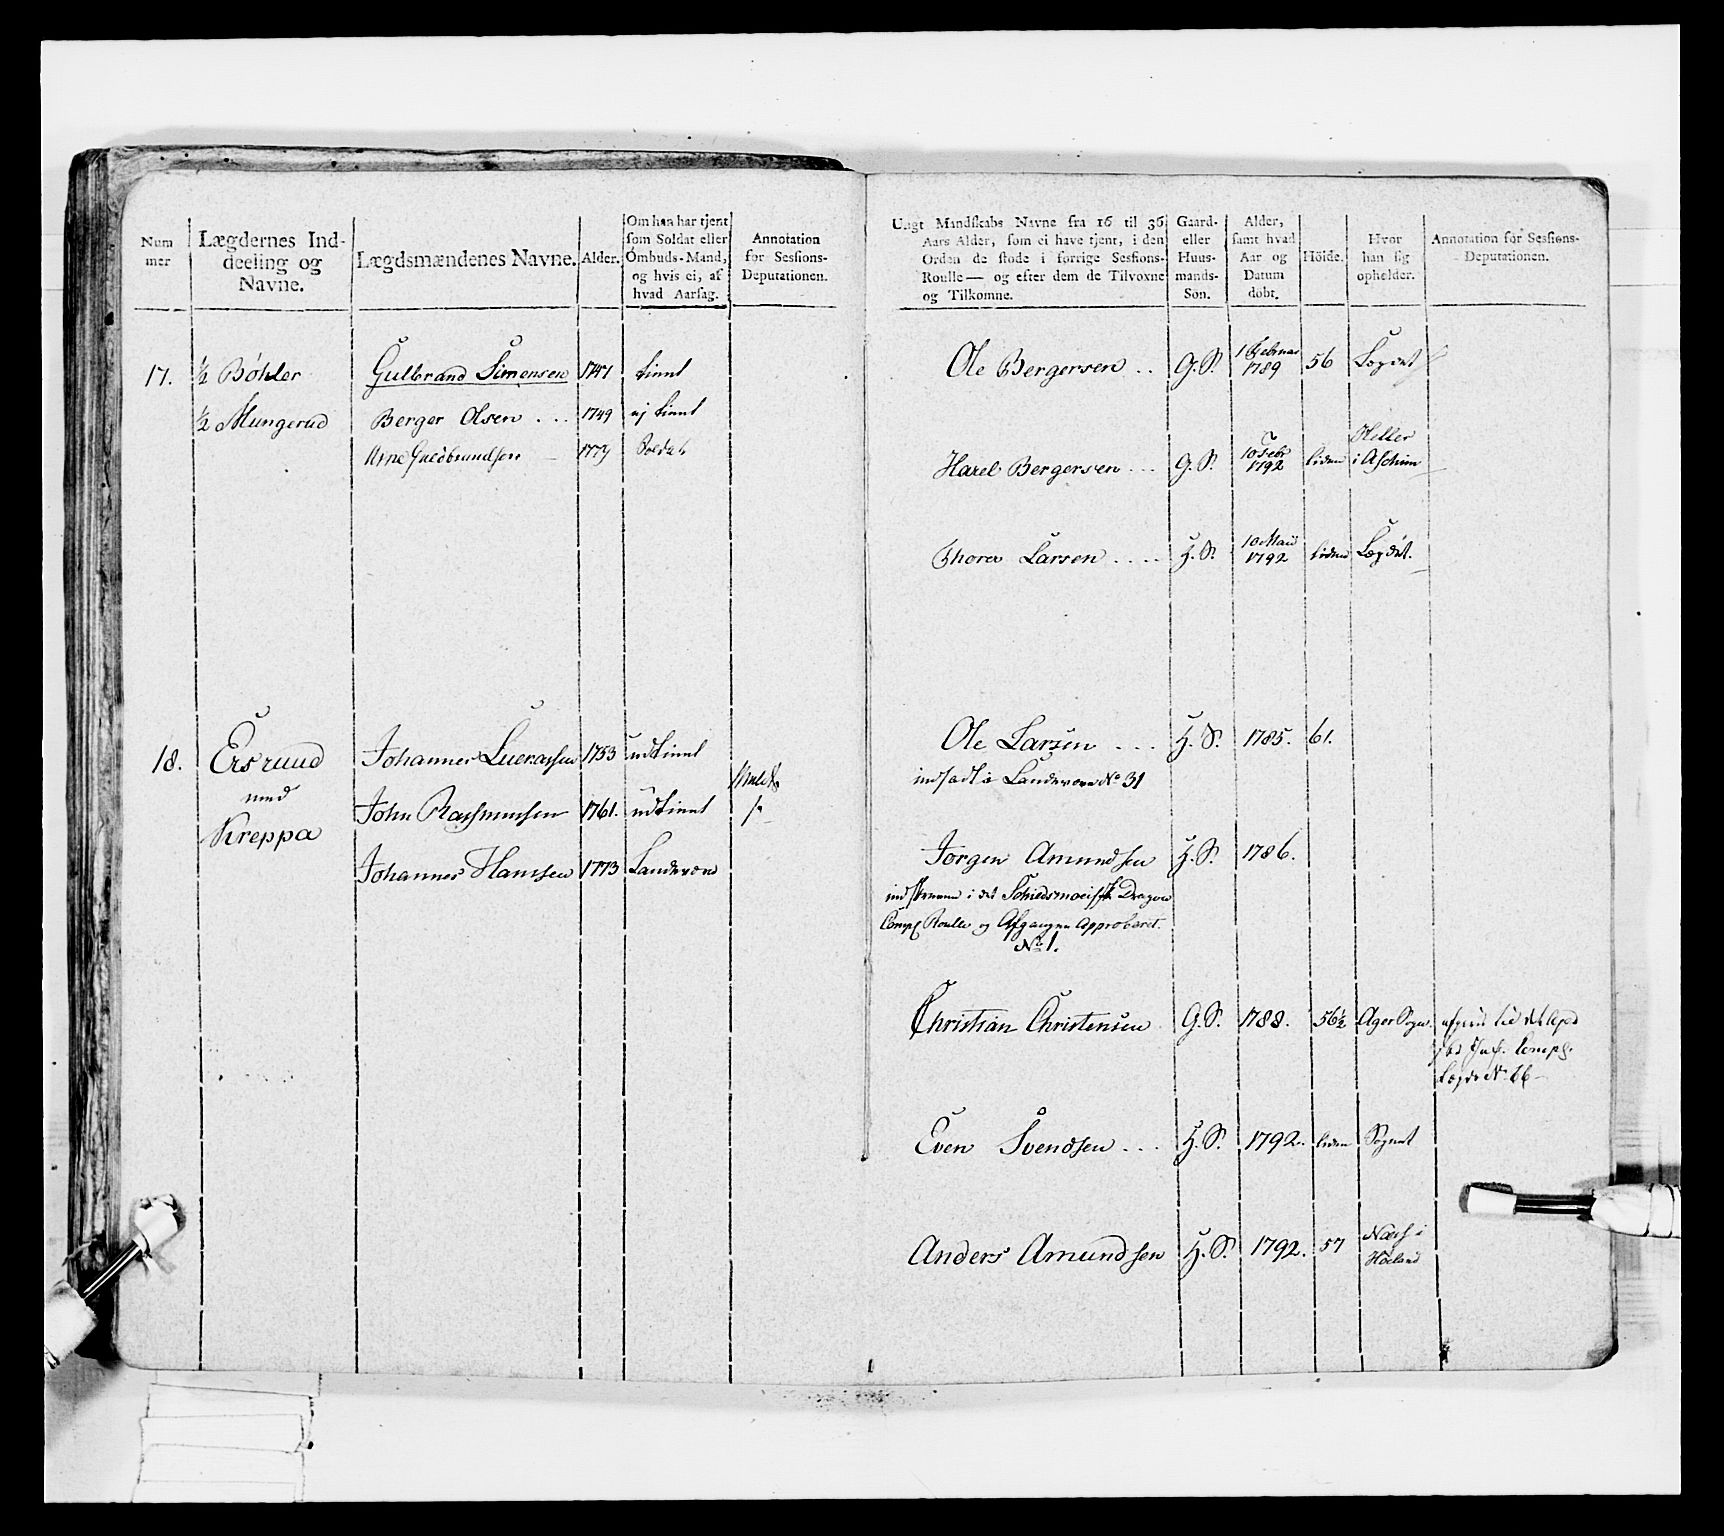 Num
mer
Lægdernes Ind-
deeling og
Navne.
Lægdsmændenes Navne.
Alder.
Om han har tjent
som Soldat eller
Ombuds-Mand,
og hvis ei, af
hvad Aarsag.
Annotation
for Sessions-
Deputationen.
17.
½ Böhler
Gulbrand Simensen
1741
tient
½ Mungerud
Berger Olsen . . .
1749
ej tient
Arne Guldbrandsen
1779
Soldat
18.
Ersrud
med
Kreppa
Johannes
1753
udtient
John Rasmussen
1761.
udtient
Johannes Hansen
1773
Landeværn
Ungt Mandskabs Navne fra 16 til 36
Aars Alder, som ei have tjent, i den
Orden de stode i forrige Sessions-
Roulle — og efter dem de Tilvoxne
og Tilkomne.
Gaard-
eller
Huus-
mands-
Søn.
Alder,
samt hvad
Aar og
Datum
døbt.
Höide.
Hvor
han sig
opholder.
Annotation for Sessions-
Deputationen.
Ole Bergersen . .
G. S.
1 Februar
1789
56
Lægdet
Harel Bergersen . . .
G. S.
10 Febr
1792
liden
i Aschim
Thorer Larsen . . . .
H. S.
10 Maii
1792
liden
Lægdet.
Ole Larsen . . .
H. S.
1785.
61.
indsadt i Landeværn No 31
Jörgen Amundsen
H. S.
1786.
indskreven i det Dragon
Comp Roulle og Afgangen Approberet.
No 1.
Christian Christensen
G. S.
1788.
56½
Ager Sogn.
Comp.
Lægd No 66
Even Svendsen . . .
H. S.
1792.
liden
Sognet
Anders Amundsen
H. S.
1792.
57
Næss i
Höland